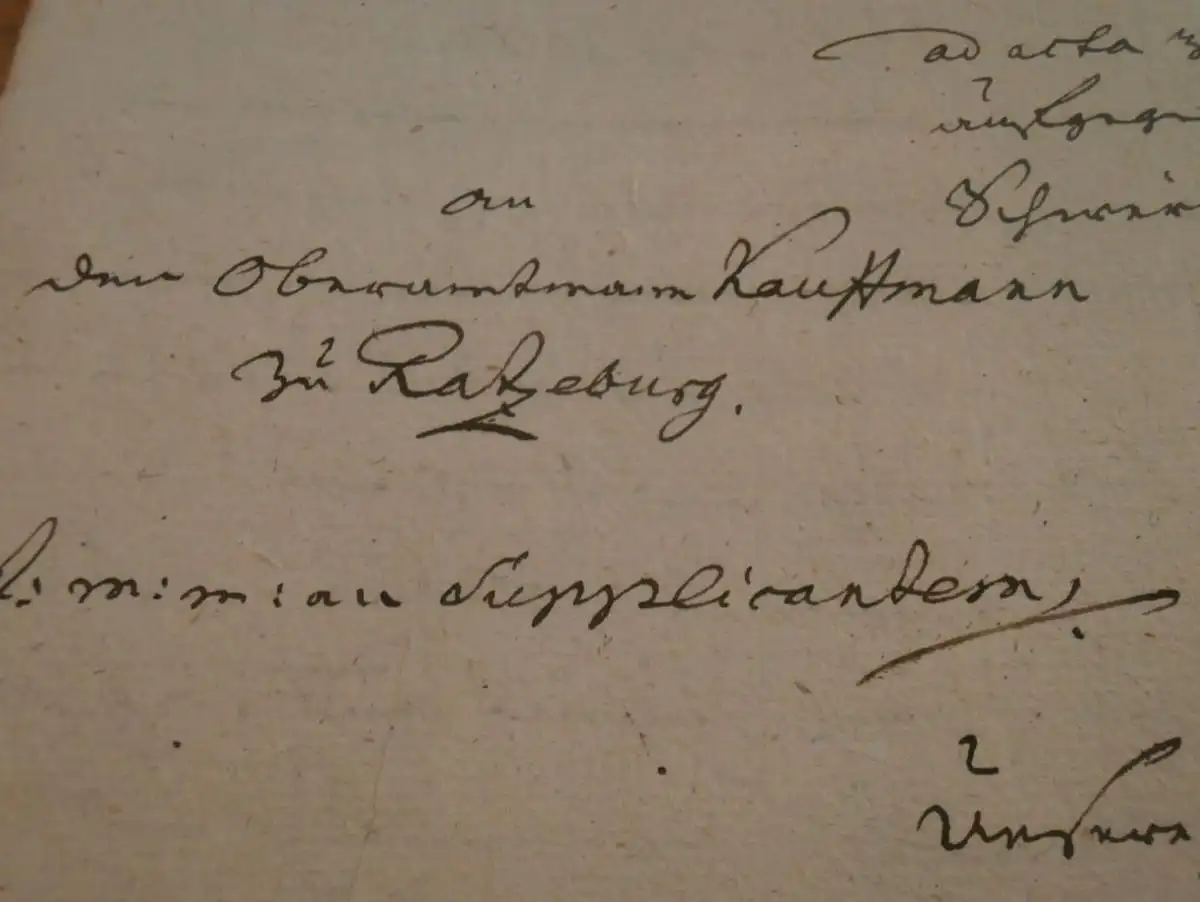 ad acta
Schwer
an
den Oberamtmann Kauffmann
zu Ratzeburg.
m: m: an Supplicantem,
Unsere